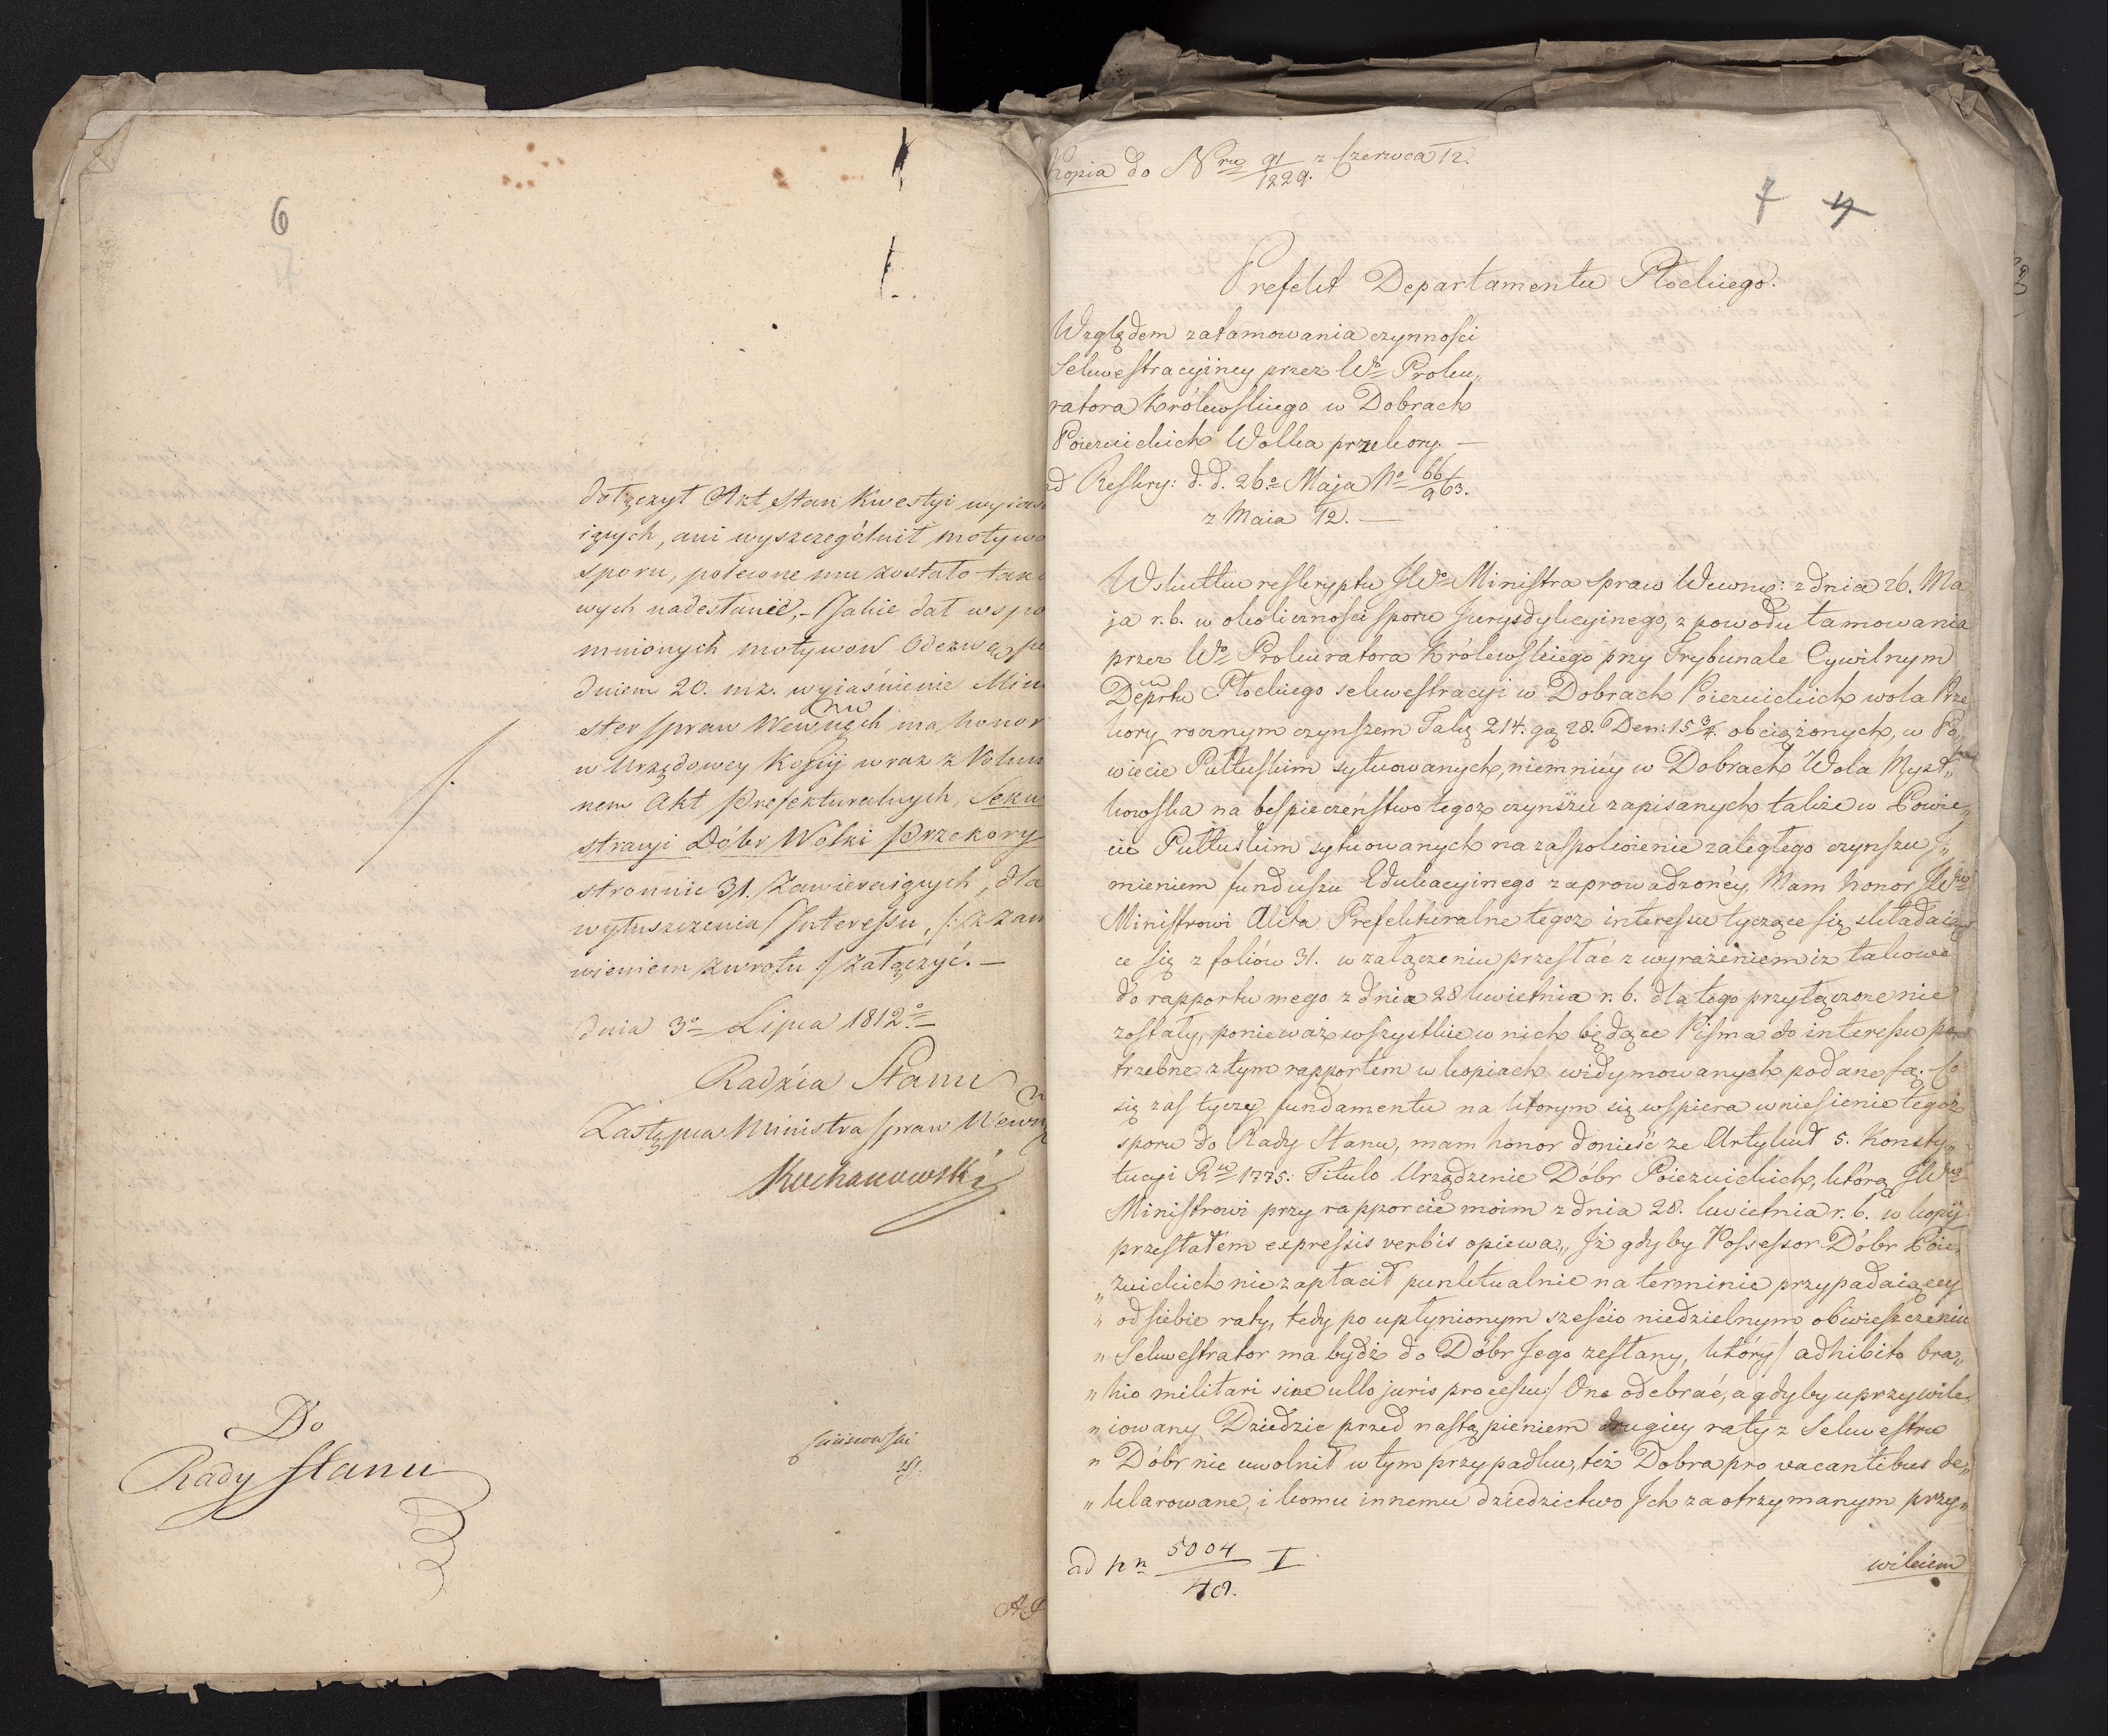 6
dołączył Akt, stan Kwestyi wyiaśn
iących, ani wyszczególnił motywo
sporu, polecone mu zostało tako
wych nadesłanie, – Jakie dał wspo
mnionych motywow Odezwą po
dniem 20. mz. wyiaśnienie Mini
ster spraw Wewnęch ma honor
w Urzędowey Kopij wraz z Volum
nem Akt Prefekturalnych, Sekw
stracyi Dóbr Wólki Przekory
stronnic 31. Zawieraiących, dla
wyłuszczenia Interessu, /: za zam
wieniem zwrotu :/ załączyć. –
dnia 3o Lipca 1812o
Radzca Stanu
Zastępca Ministra spraw Wewnę
Kochanowski
Do
Rady Stanu
Kopia do Nru 91/1229. z Czerwca 12.
7 4
Prefekt Departamentu Płockiego.
Względem zatamowania czynności
Sekwestracyiney przez Wo Proku„
ratora Królewskiego w Dobrach
Poiezuickich Wolka przekory. —
ad Reskry: d. d. 26o Maja No 66/963.
z Maia 12. —
Wskutku reskryptu JWo Ministra Spraw Wewnę: z dnia 26. Ma
ja r. b. w okoliczności sporu Jurysdykcyinego, z powodu tamowania
przez Wo Prokuratora Królewskiego przy Trybunale Cywilnym
Deprtu Płockiego sekwestracyi w Dobrach Poiezuickich wola Prze
kory rocznym czynszem Talą 214. gą 28. Den: 15 3/4. obciążonych, w Po„
wiecie Pułtuskim sytuowanych, niemniéy w Dobrach Wola Mysł„
kowska na bespieczeństwo tegoż czynszu zapisanych także w Powie„
cie Pułtuskim sytuowanych na zaspokoienie zaległego czynszu J„
mieniem funduszu Edukacyinego zaprowadzonéy, Mam honor JWu
Ministrowi Akta Prefekturalne tegoż interessu tyczące się składaią
ce się z foliów 31. w załączeniu przesłać z wyrażeniem iż takowe
do rapportu mego z dnia 28 kwietnia r. b. dla tego przyłączone nie
zostały, ponieważ wszystkie w nich będące Pisma do interessu po
trzebne z tym rapportem w kopiach widymowanych podane są. Co
się zaś tyczy fundamentu na ktorym się wspiera wniesienie tegoż
sporu do Rady Stanu, mam honor donieść ze Artykuł 5. Konsty„
tucyi Ru 1775: Titulo Urządzenie Dóbr Poiezuickich, którą JWu
Ministrowi przy rapporcie moim z dnia 28. kwietnia r. b. w kopij
przesłałém expressis verbis opiewa „Jż gdyby Possessor Dóbr Poie„
„ zuickich nie zapłacił punktualnie na terminie przypadaiącey
„ od siebie raty, tedy po upłynionym sześcio niedzielnym obwieszczeniu
„ Sekwestrator ma bydź do Dóbr Jego zesłany, który / adhibito bra„
„ hio militari sine ullo juris processu / One odebrać, a gdyby uprzywile„
„ iowany Dziedzic przed nastąpieniem drugiey raty z Sekwestru
„ Dóbr nie uwolnił w tym przypadku, też Dobra pro vacantibus de„
„ klarowane, i komu innemu dziedzictwo Jch za otrzymanym przy„
wileiem
ad Nn 5004/48. I